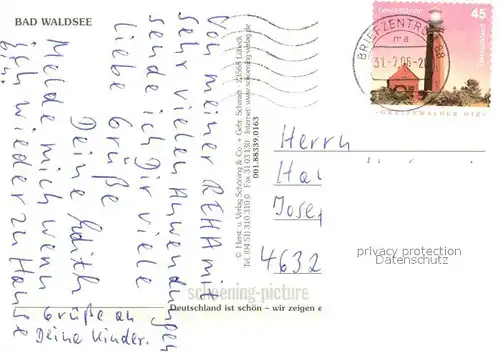 BAD WALDSEE
Von meiner REHA mit
sehr vielen Anwendungen
sende ich Dir viele
liebe Grüße
Deine Edith
Melde mich wenn
ich wieder zu Hause
bin.
Grüße an
Deine Kinder.
© Herst. u. Verlag Schöning & Co. + Gebr. Schmidt, 23558 Lübeck
Tel. (04 51) 31 03 10 0 Fax 31 03 130 Internet: www.schoening-verlag.de
001.88339.0163
Leuchttürme
45
Deutschland
GREIFSWALDER OIE
BRIEFZENTRUM 88
ma
31.-7.05-20
Herrn
Ha
Josep
4632
privacy protection
Datenschutz
schoening-picture
Deutschland ist schön – wir zeigen e